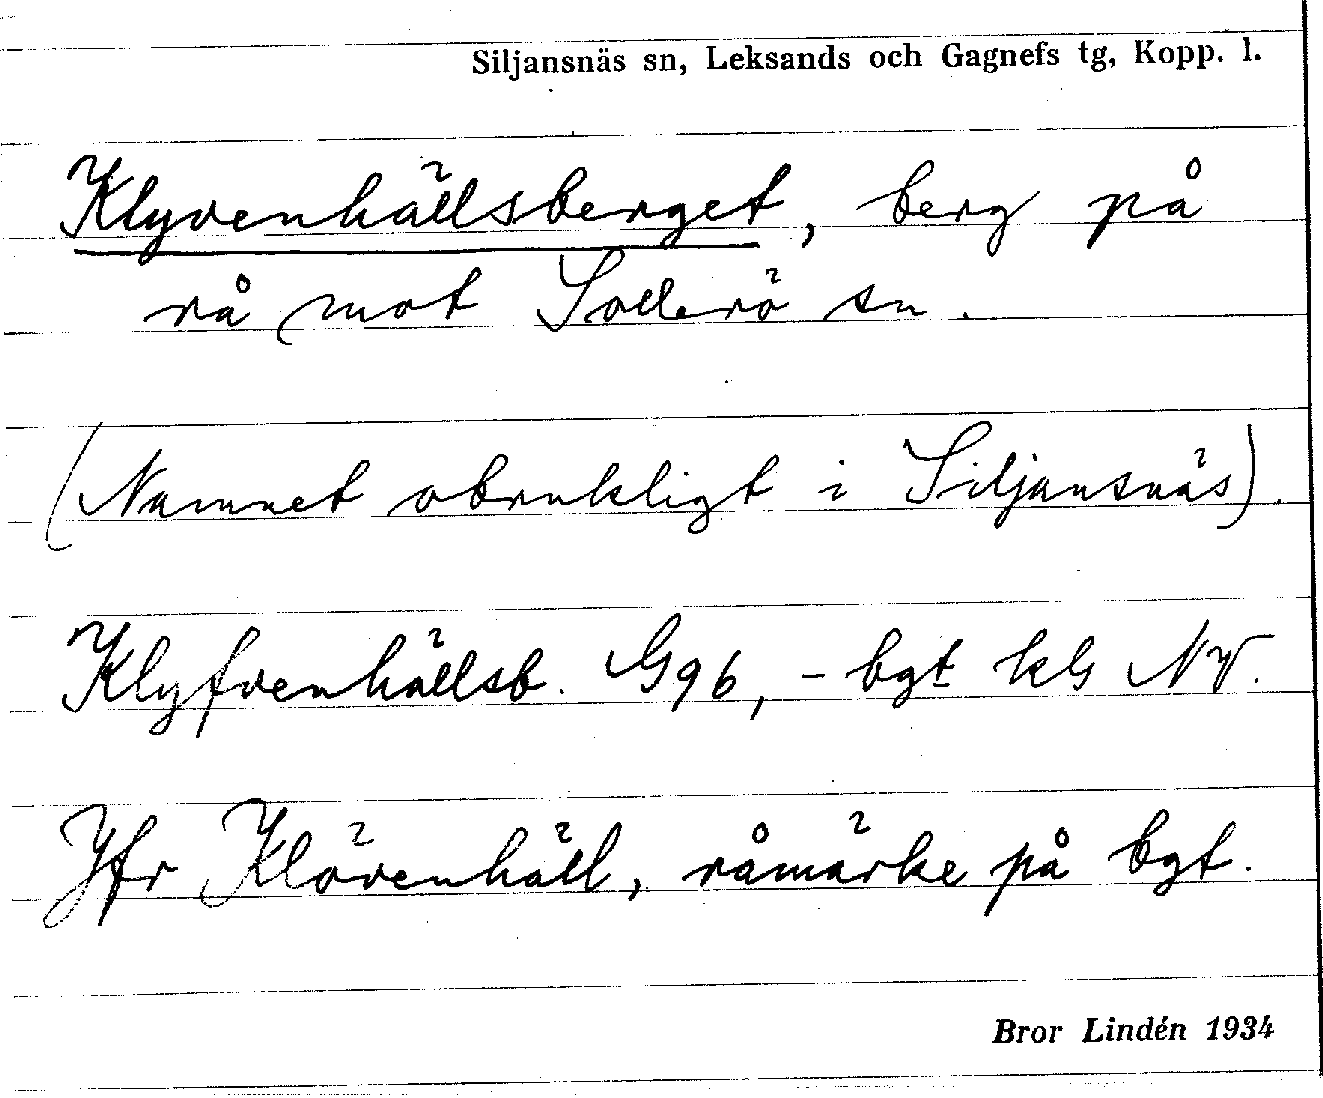 Siljansnäs sn, Leksands och Gagnefs tg, Kopp. l.
Klyvenhällsberget, berg på
rå mot Sollerö sn.
(Namnet obrukligt i Siljansnäs).
Klyfvenhällsb. G96, – bgt kls NV.
Jfr Klövenhäll, råmärke på bgt.
Bror Lindén 1934